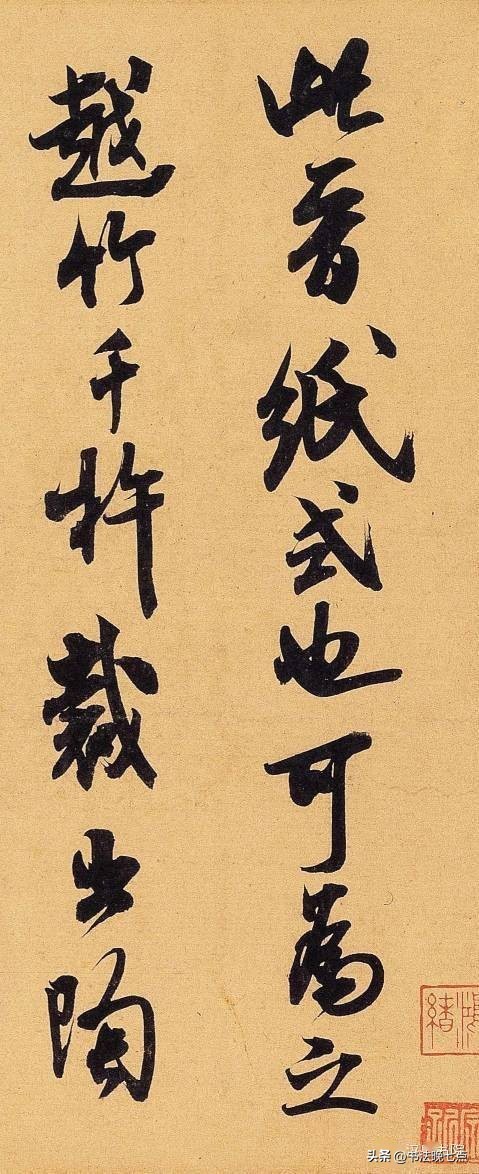 此晉紙式也可為之
越竹千杵裁出陶
头条 @书法晚七点